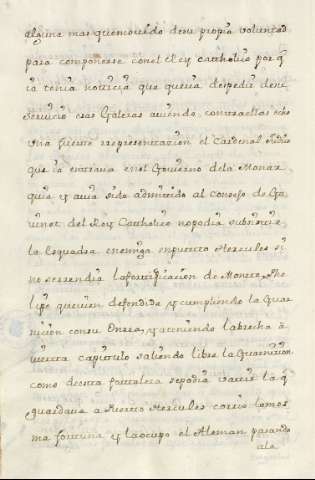 alguna mas que movido de su propia voluntad
para componerse con el Rey Catholico por q̃
ia tenia noticia que queria despedir de su
servicio esas Galeras aviendo contra ellas echo
una fuerte representacion el Cardenal
que ia entrava en el Govierno de la Monar
quia y avia sido admitido al consejo de Ga
vinet del Rey Catholico no podia subsistir
la esquadra enemiga en puerto Hercules si
no se rendia la fortificacion de Monte Phe
lipo que bien defendida y cumpliendo la Guar
nicion con su onra, y teniendo la brecha a
vierta capitulo saliendo libre la Guarnicion
como de otra fortaleza se podia vatir la q̃
guardava a Puerto Hercules corrio la mes
ma fortuna y la ocupo el Aleman pasando
a la